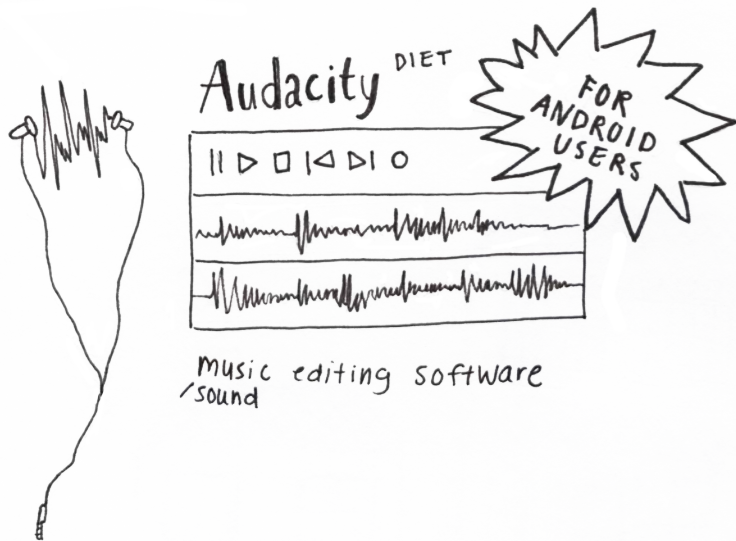 Audacity DIET
FOR
ANDROID
USERS
music editing software
/sound